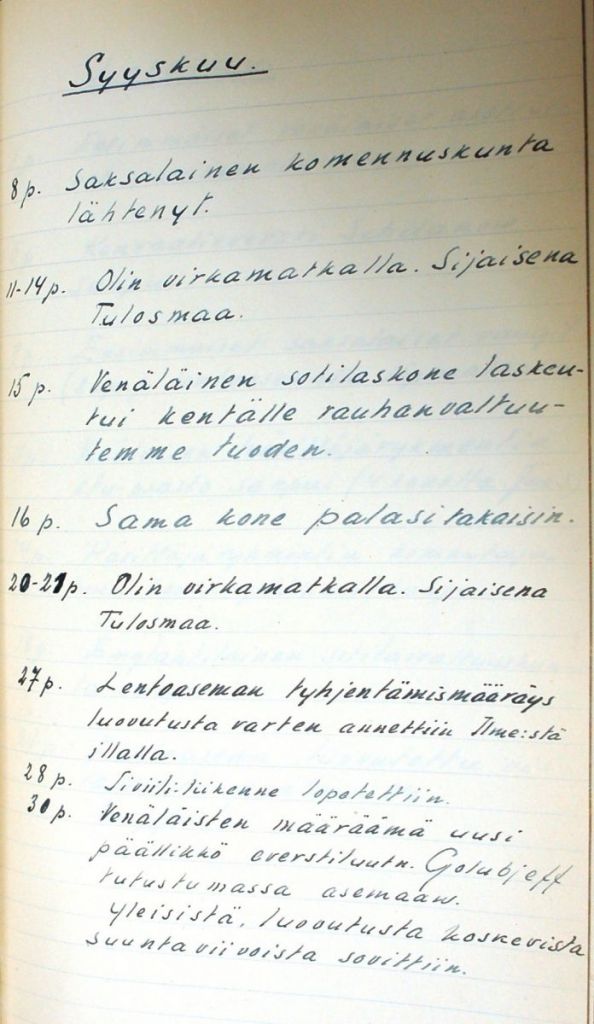 Syyskuu.
8 p. Saksalainen komennuskunta
lähtenyt.
11-14 p. Olin virkamatkalla. Sijaisena
Tulosmaa.
15 p. Venäläinen sotilaskone laskeu-
tui kentälle rauhanvaltuu-
temme tuoden.
16 p. Sama kone palasi takaisin.
20-21 p. Olin virkamatkalla. Sijaisena
Tulosmaa.
27 p. Lentoaseman tyhjentämismääräys
luovutusta varten annettiin Ilme:stä
illalla.
28 p. Siviili-liikenne lopetettiin.
30 p. Venäläisten määräämä uusi
päällikkö everstiluutn. Golubjeff
tutustumassa asemaan.
Yleisistä, luovutusta koskevista
suuntaviivoista sovittiin.